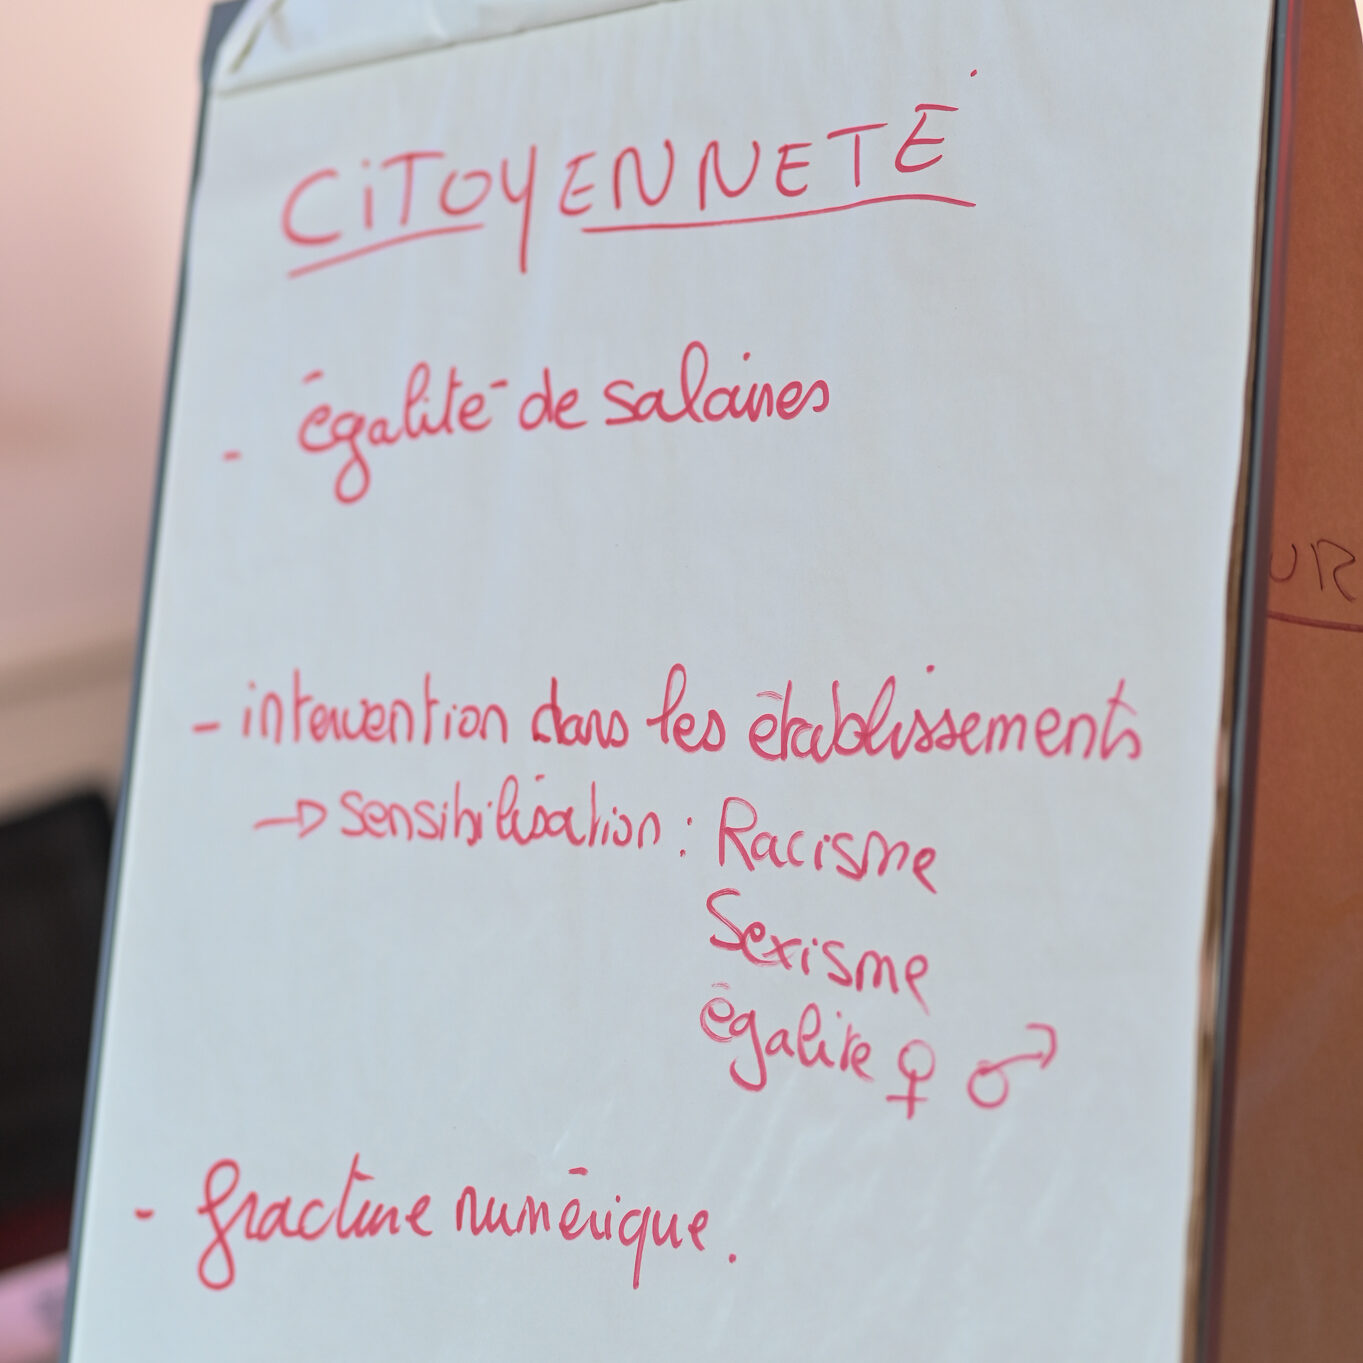 CiTOYENNETÉ
- égalité de salaires
- intervention dans les établissements
→ sensibilisation : Racisme
Sexisme
égalite ♀ ♂
- fracture numérique.
UR